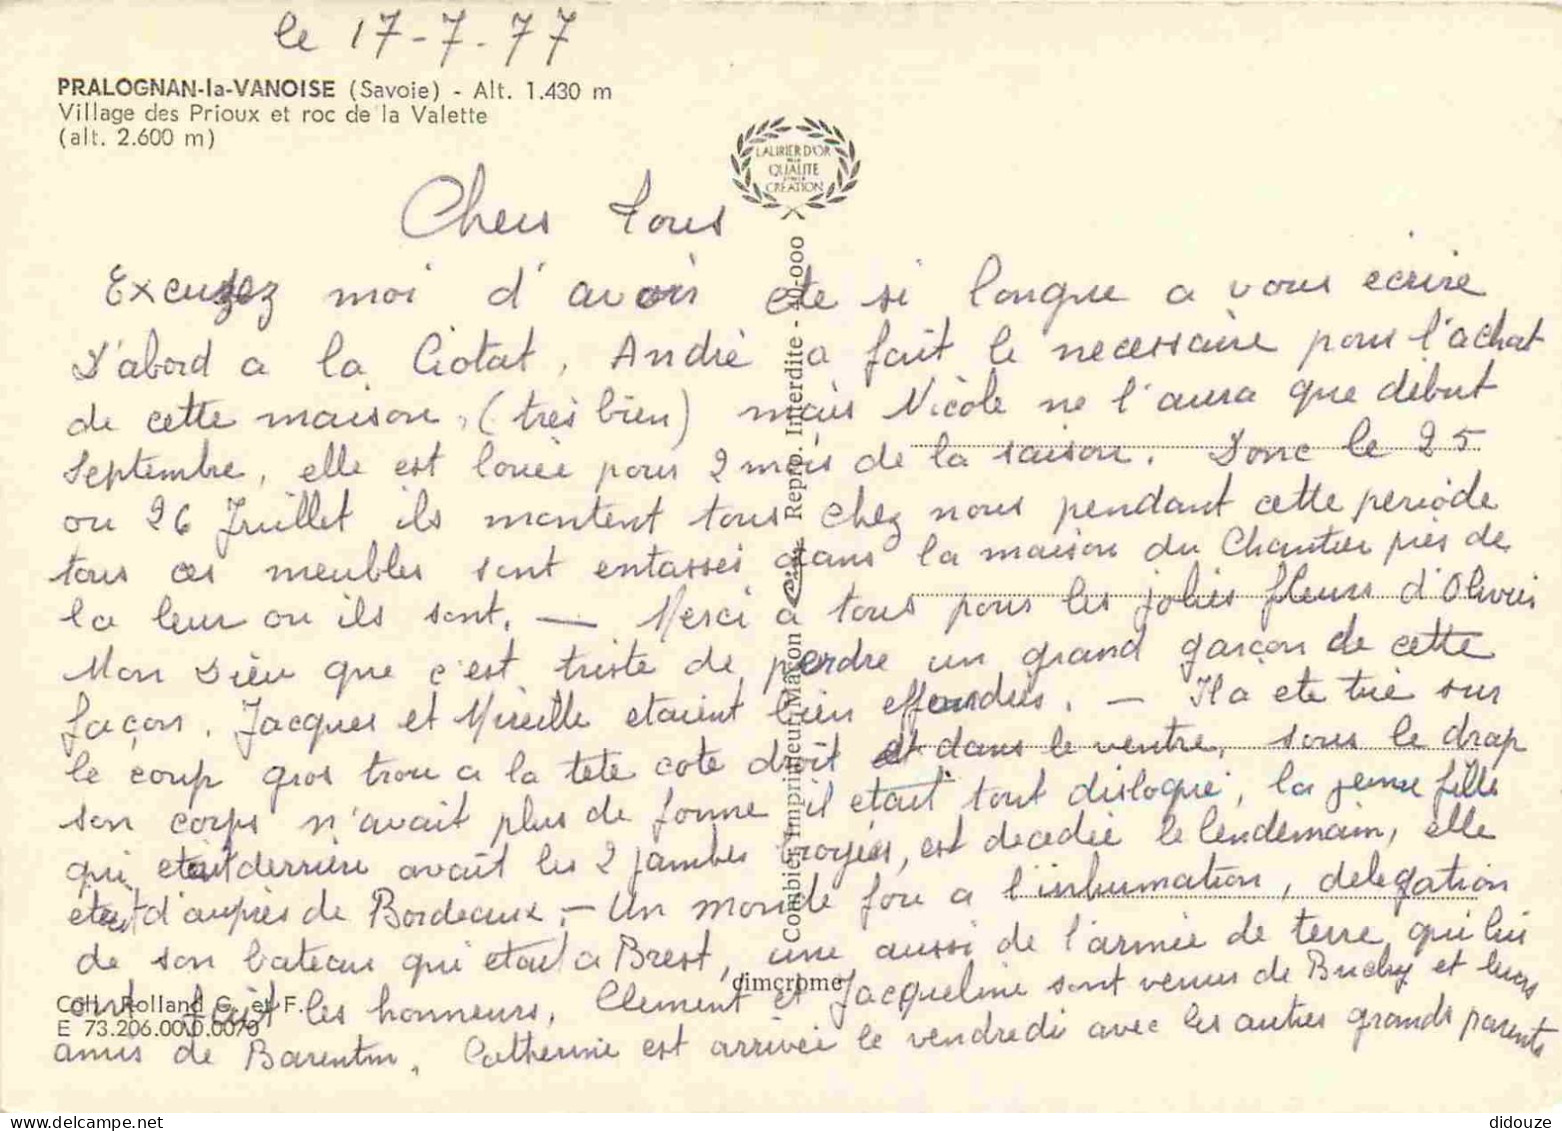 le 17-7-77
PRALOGNAN-la-VANOISE (Savoie) - Alt. 1.430 m
Village des Prioux et roc de la Valette
(alt. 2.600 m)
LAURIER D'OR
QUALITE
CREATION
Chers Tous
Excusez moi d'avoir ete si longue a vous ecrire
D'abord a la Ciotat, Andrè a fait le necessaire pour l'achat
de cette maison, (très bien) mais Nicole ne l'aura que début
Septembre, elle est louée pour 2 mois de la saison. Donc le 25
ou 26 Juillet ils montent tous chez nous pendant cette periode
tous ces meubles sont entassés dans la maison du Chantier près de
la leur ou ils sont. — Merci a tous pour les jolies fleurs d'Olivier
Mon Dieu que c'est triste de perdre un grand garçon de cette
façon. Jacques et Mireille etaient bien effondrés. — Il a ete tué sur
le coup gros trou a la tete cote droit et dans le ventre, sous le drap
son corps n'avait plus de forme il etait tout disloqué, la jeune fille
qui etait derrière avait les 2 jambes broyées, est decedée le lendemain, elle
etait d'auprès de Bordeaux. — Un monde fou a l'inhumation, delegation
de son bateau qui etait a Brest, une aussi de l'armée de terre qui lui
ont fait les honneurs. Clement et Jacqueline sont venus de Buchy et leurs
amis de Barentin. Catherine est arrivée le vendredi avec les autres grands parents
Coll. Rolland G. et F.
E 73.206.00.0.0070
dimcrome
Combier Imprimeur Mâcon Cim Repro. Interdite - 40-000
didouze